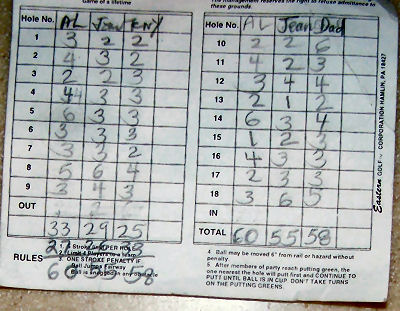 Game of a lifetime
Hole No. AL Jean
1 3 2 2
2 4 3 2
3 2 2 3
4 4 3 3
5 6 3 3
6 3 3 3
7 3 3 2
8 5 6 4
9 3 4 3
OUT
33 29 25
RULES
1. A Stroke PER HOLE
2. Limit 4 Players to a team
3. ONE STROKE PENALTY IF
Ball Jumps Fairway
Ball is in any obstacle
60 55 58
The management reserves the right to refuse admittance to
these grounds.
Hole No. AL Jean Dad
10 2 2 6
11 4 2 3
12 3 4 4
13 2 1 2
14 6 3 4
15 1 2 3
16 4 3 3
17 2 3 3
18 3 6 5
IN
TOTAL 60 55 58
4. Ball may be moved 6" from rail or hazard without
penalty.
5. After members of party reach putting green, the
one nearest the hole will putt first and CONTINUE TO
PUTT UNTIL BALL IS IN CUP. DON'T TAKE TURNS
ON THE PUTTING GREENS.
Eastern GOLF CORPORATION HAMLIN, PA 18427